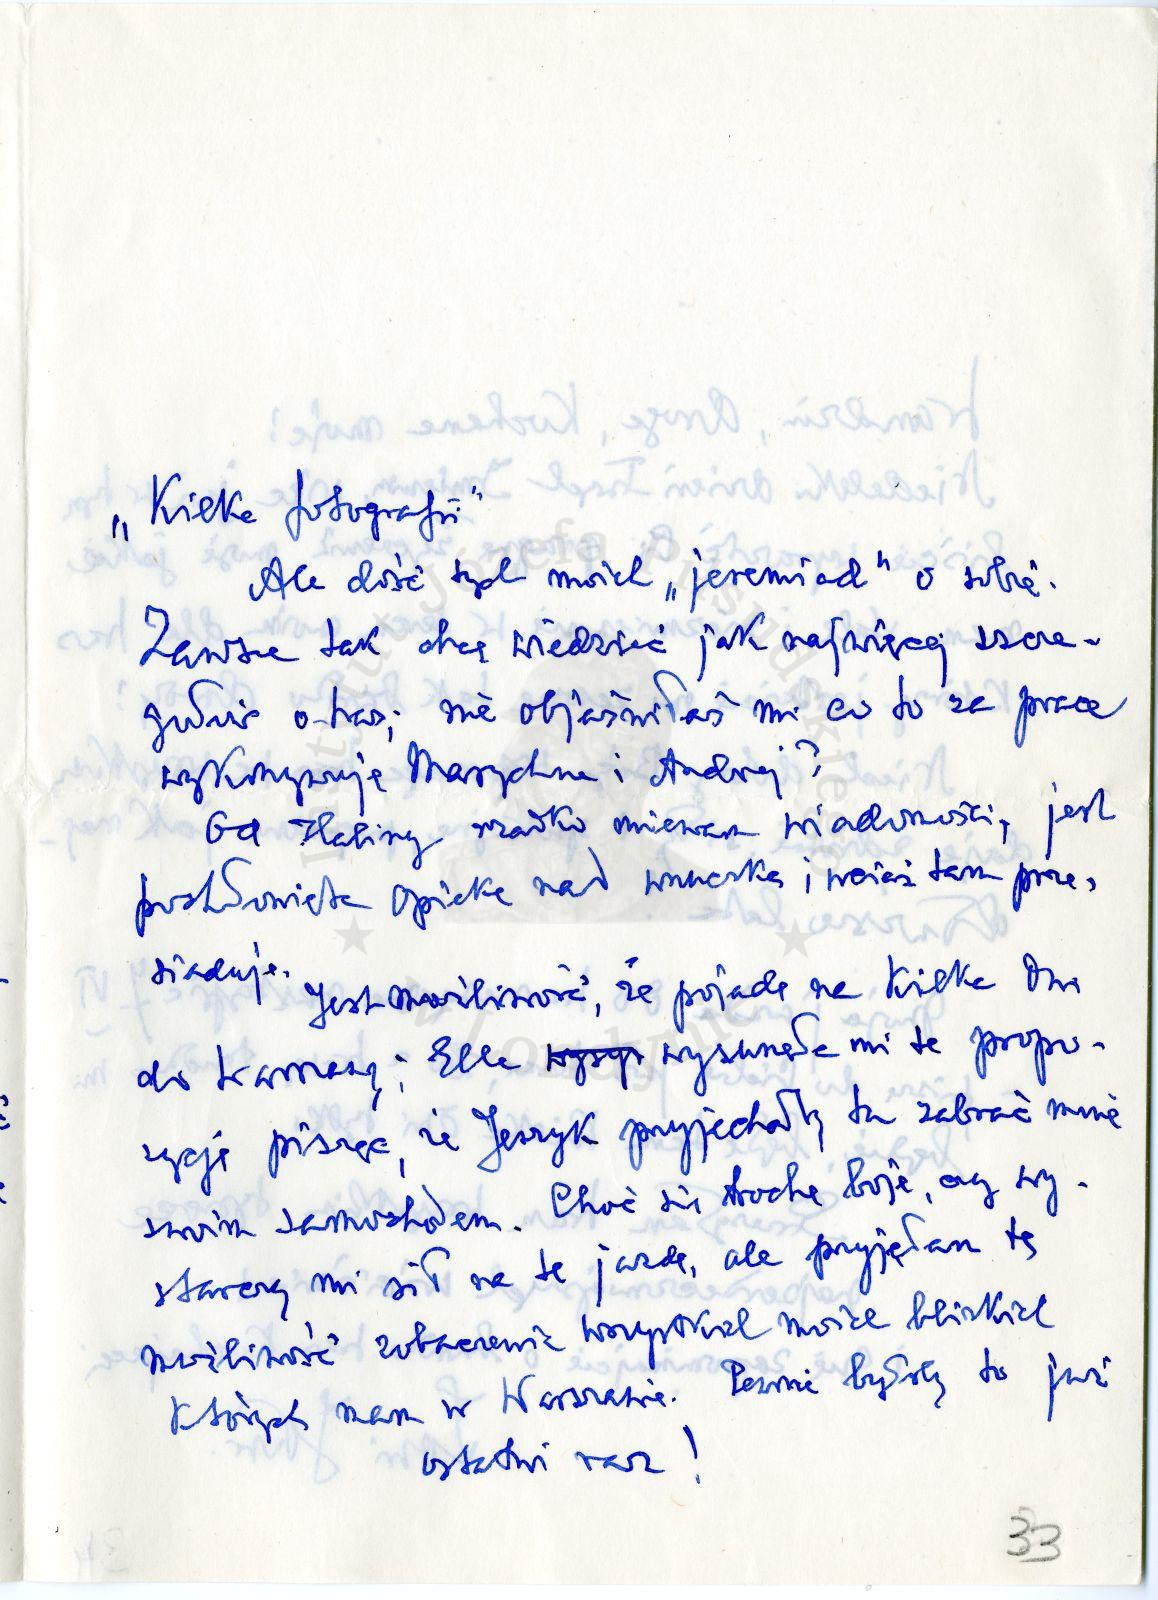 „Kilka fotografii"
Ale dość tych moich „jeremiad" o sobie.
Zawsze tak chcę wiedzieć jak najwięcej szcze-
gółów o Was; nie objaśniłaś mi co to za prace
wykonywuję Marychna i Andrzej?
Od Haliny rzadko miewam wiadomości, jest
pochłonięta opieką nad wnuczką i wciąż tam prze-
siaduje.
Jest możliwość, że pojadę na kilka dni
do Warszawy; Ela wysu wysunęła mi tę propo-
zycję pisząc, że Jerzyk przyjechałby tu zabrać mnie
swoim samochodem. Choć się trochę boję, czy wy-
starczy mi sił na tę jazdę, ale przyjęłam tę
możliwość zobaczenia wszystkich moich bliskich
których mam w Warszawie. Pewnie byłby to już
ostatni raz!
33
Instytut Józefa Piłsudskiego
w Londynie